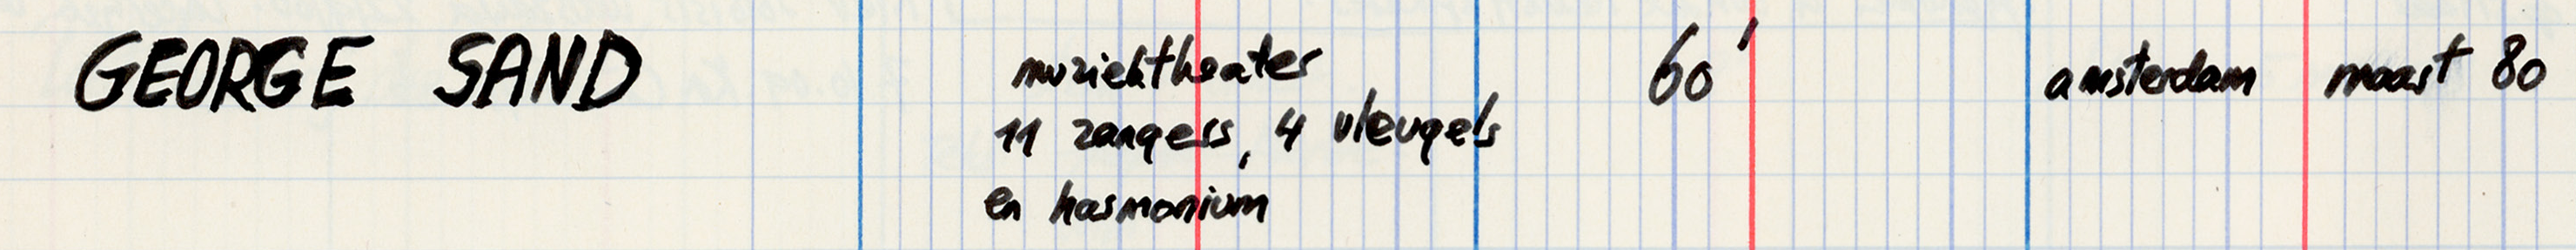 GEORGE SAND muziektheater 60' amsterdam maart 80
11 zangers, 4 vleugels
en harmonium